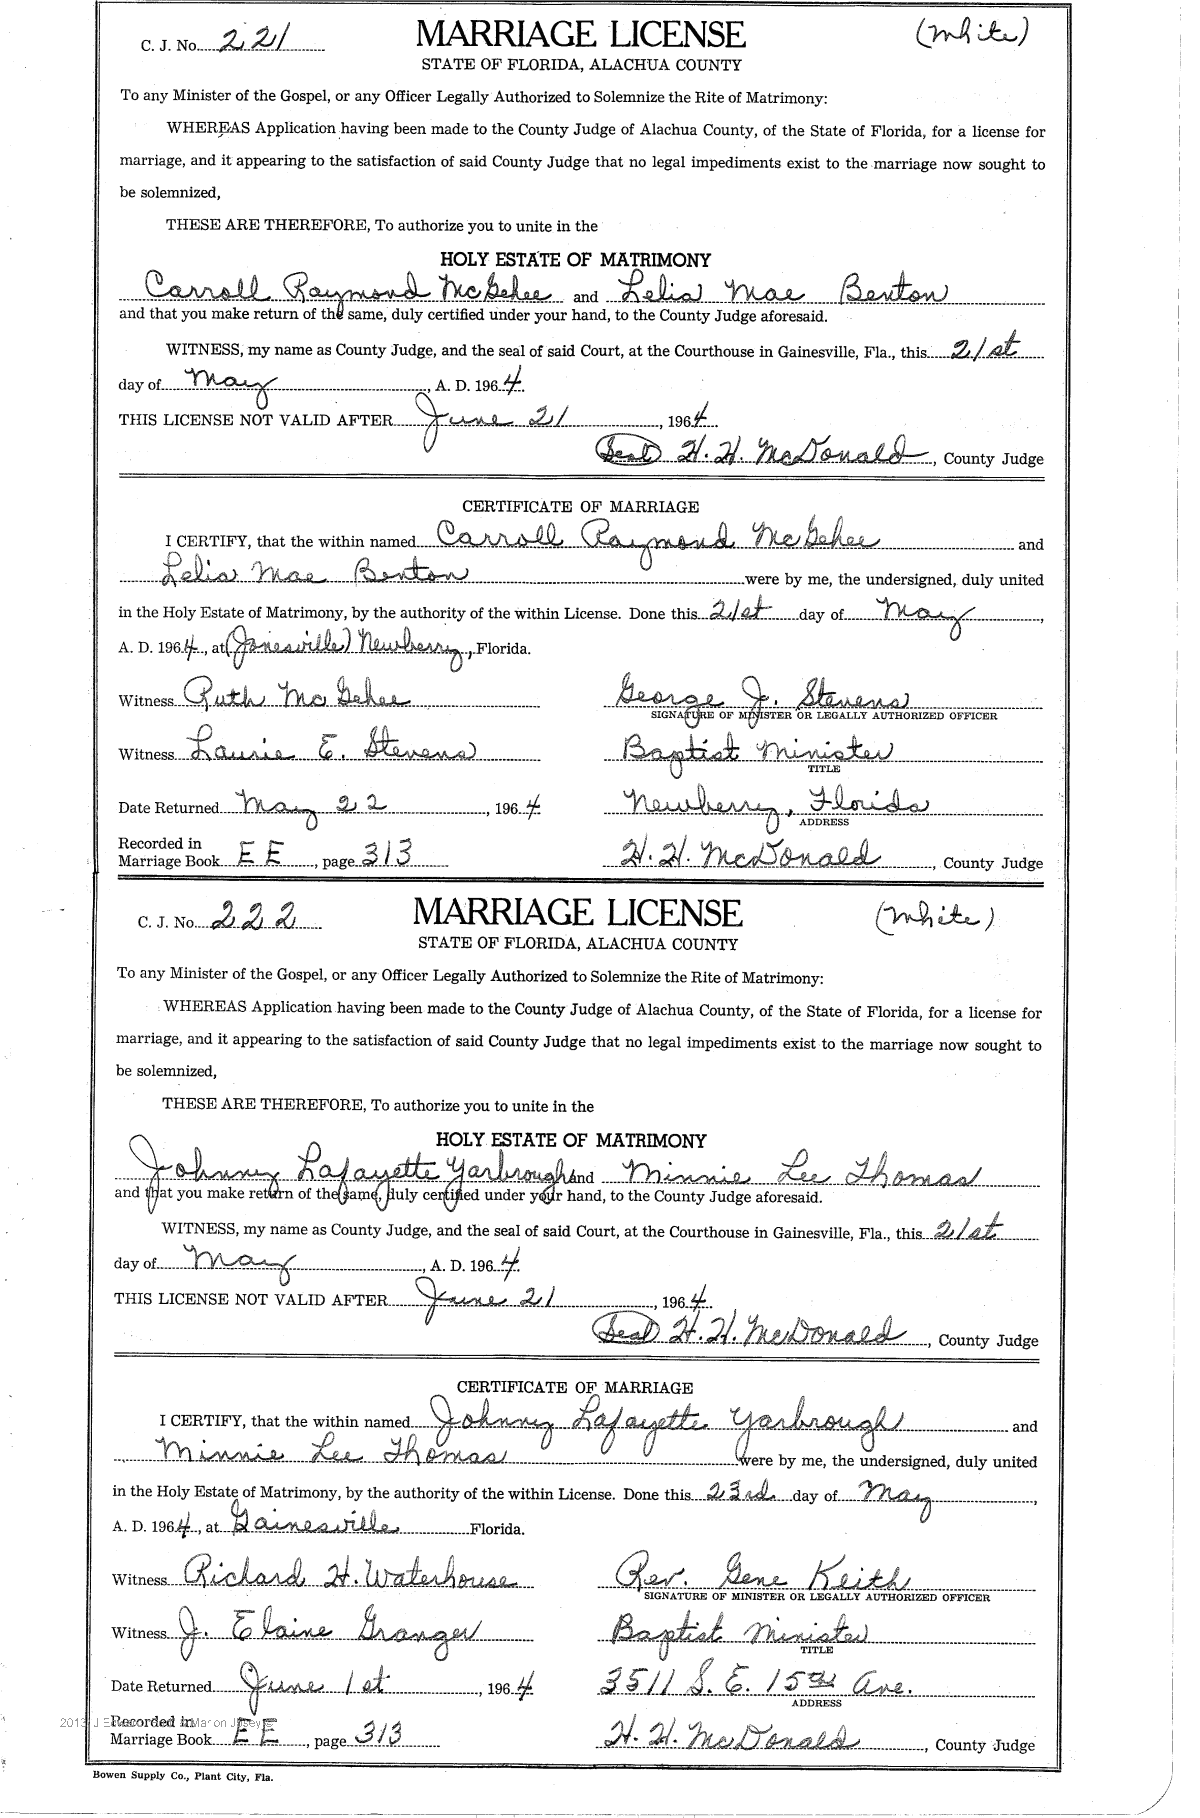 C. J. No. 221 MARRIAGE LICENSE (White)
STATE OF FLORIDA, ALACHUA COUNTY
To any Minister of the Gospel, or any Officer Legally Authorized to Solemnize the Rite of Matrimony:
WHEREAS Application having been made to the County Judge of Alachua County, of the State of Florida, for a license for
marriage, and it appearing to the satisfaction of said County Judge that no legal impediments exist to the marriage now sought to
be solemnized,
THESE ARE THEREFORE, To authorize you to unite in the
HOLY ESTATE OF MATRIMONY
Carroll Raymond McGehee and Lelia Mae Benton
and that you make return of the same, duly certified under your hand, to the County Judge aforesaid.
WITNESS, my name as County Judge, and the seal of said Court, at the Courthouse in Gainesville, Fla., this 21st
day of May, A. D. 1964.
THIS LICENSE NOT VALID AFTER June 21, 1964.
(Seal) H. H. McDonald, County Judge
CERTIFICATE OF MARRIAGE
I CERTIFY, that the within named Carroll Raymond McGehee and
Lelia Mae Benton were by me, the undersigned, duly united
in the Holy Estate of Matrimony, by the authority of the within License. Done this 21st day of May,
A. D. 1964, at (Jonesville) Newberry, Florida.
Witness Ruth McGehee George J. Stevens
SIGNATURE OF MINISTER OR LEGALLY AUTHORIZED OFFICER
Witness Laurie E. Stevens Baptist Minister
TITLE
Date Returned May 22, 1964 Newberry, Florida
ADDRESS
Recorded in
Marriage Book EE, page 313 H. H. McDonald, County Judge
C. J. No. 222 MARRIAGE LICENSE (White)
STATE OF FLORIDA, ALACHUA COUNTY
To any Minister of the Gospel, or any Officer Legally Authorized to Solemnize the Rite of Matrimony:
WHEREAS Application having been made to the County Judge of Alachua County, of the State of Florida, for a license for
marriage, and it appearing to the satisfaction of said County Judge that no legal impediments exist to the marriage now sought to
be solemnized,
THESE ARE THEREFORE, To authorize you to unite in the
HOLY ESTATE OF MATRIMONY
Johnny Lafayette Yarbrough and Minnie Lee Thomas
and that you make return of the same, duly certified under your hand, to the County Judge aforesaid.
WITNESS, my name as County Judge, and the seal of said Court, at the Courthouse in Gainesville, Fla., this 21st
day of May, A. D. 1964.
THIS LICENSE NOT VALID AFTER June 21, 1964.
(Seal) H. H. McDonald, County Judge
CERTIFICATE OF MARRIAGE
I CERTIFY, that the within named Johnny Lafayette Yarbrough and
Minnie Lee Thomas were by me, the undersigned, duly united
in the Holy Estate of Matrimony, by the authority of the within License. Done this 23rd day of May,
A. D. 1964, at Gainesville Florida.
Witness Richard H. Waterhouse Rev. Gene Keith
SIGNATURE OF MINISTER OR LEGALLY AUTHORIZED OFFICER
Witness J. Elaine Granger Baptist Minister
TITLE
Date Returned June 1st, 1964 3511 S. E. 15th Ave.
ADDRESS
Recorded in
Marriage Book EE, page 313 H. H. McDonald, County Judge
Bowen Supply Co., Plant City, Fla.